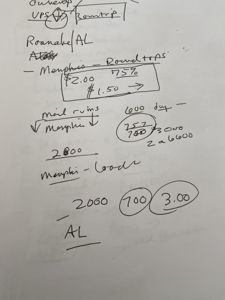 UPS ↓ Bamtrip
Roanoke/AL
— Memphis — Roundtrops
$2.00 75%
$1.50 →
mail runs 600 day —
↓ Memphis ↓ 757
700 3000
2000 2 a 6600
Memphis - Loads
— 2000 700 3.00
AL